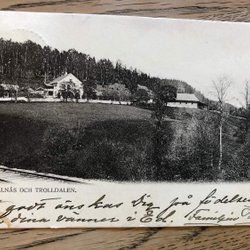 LNÄS OCH TROLLDALEN.
godt önskas Dig på födelsed
dina vänner i E